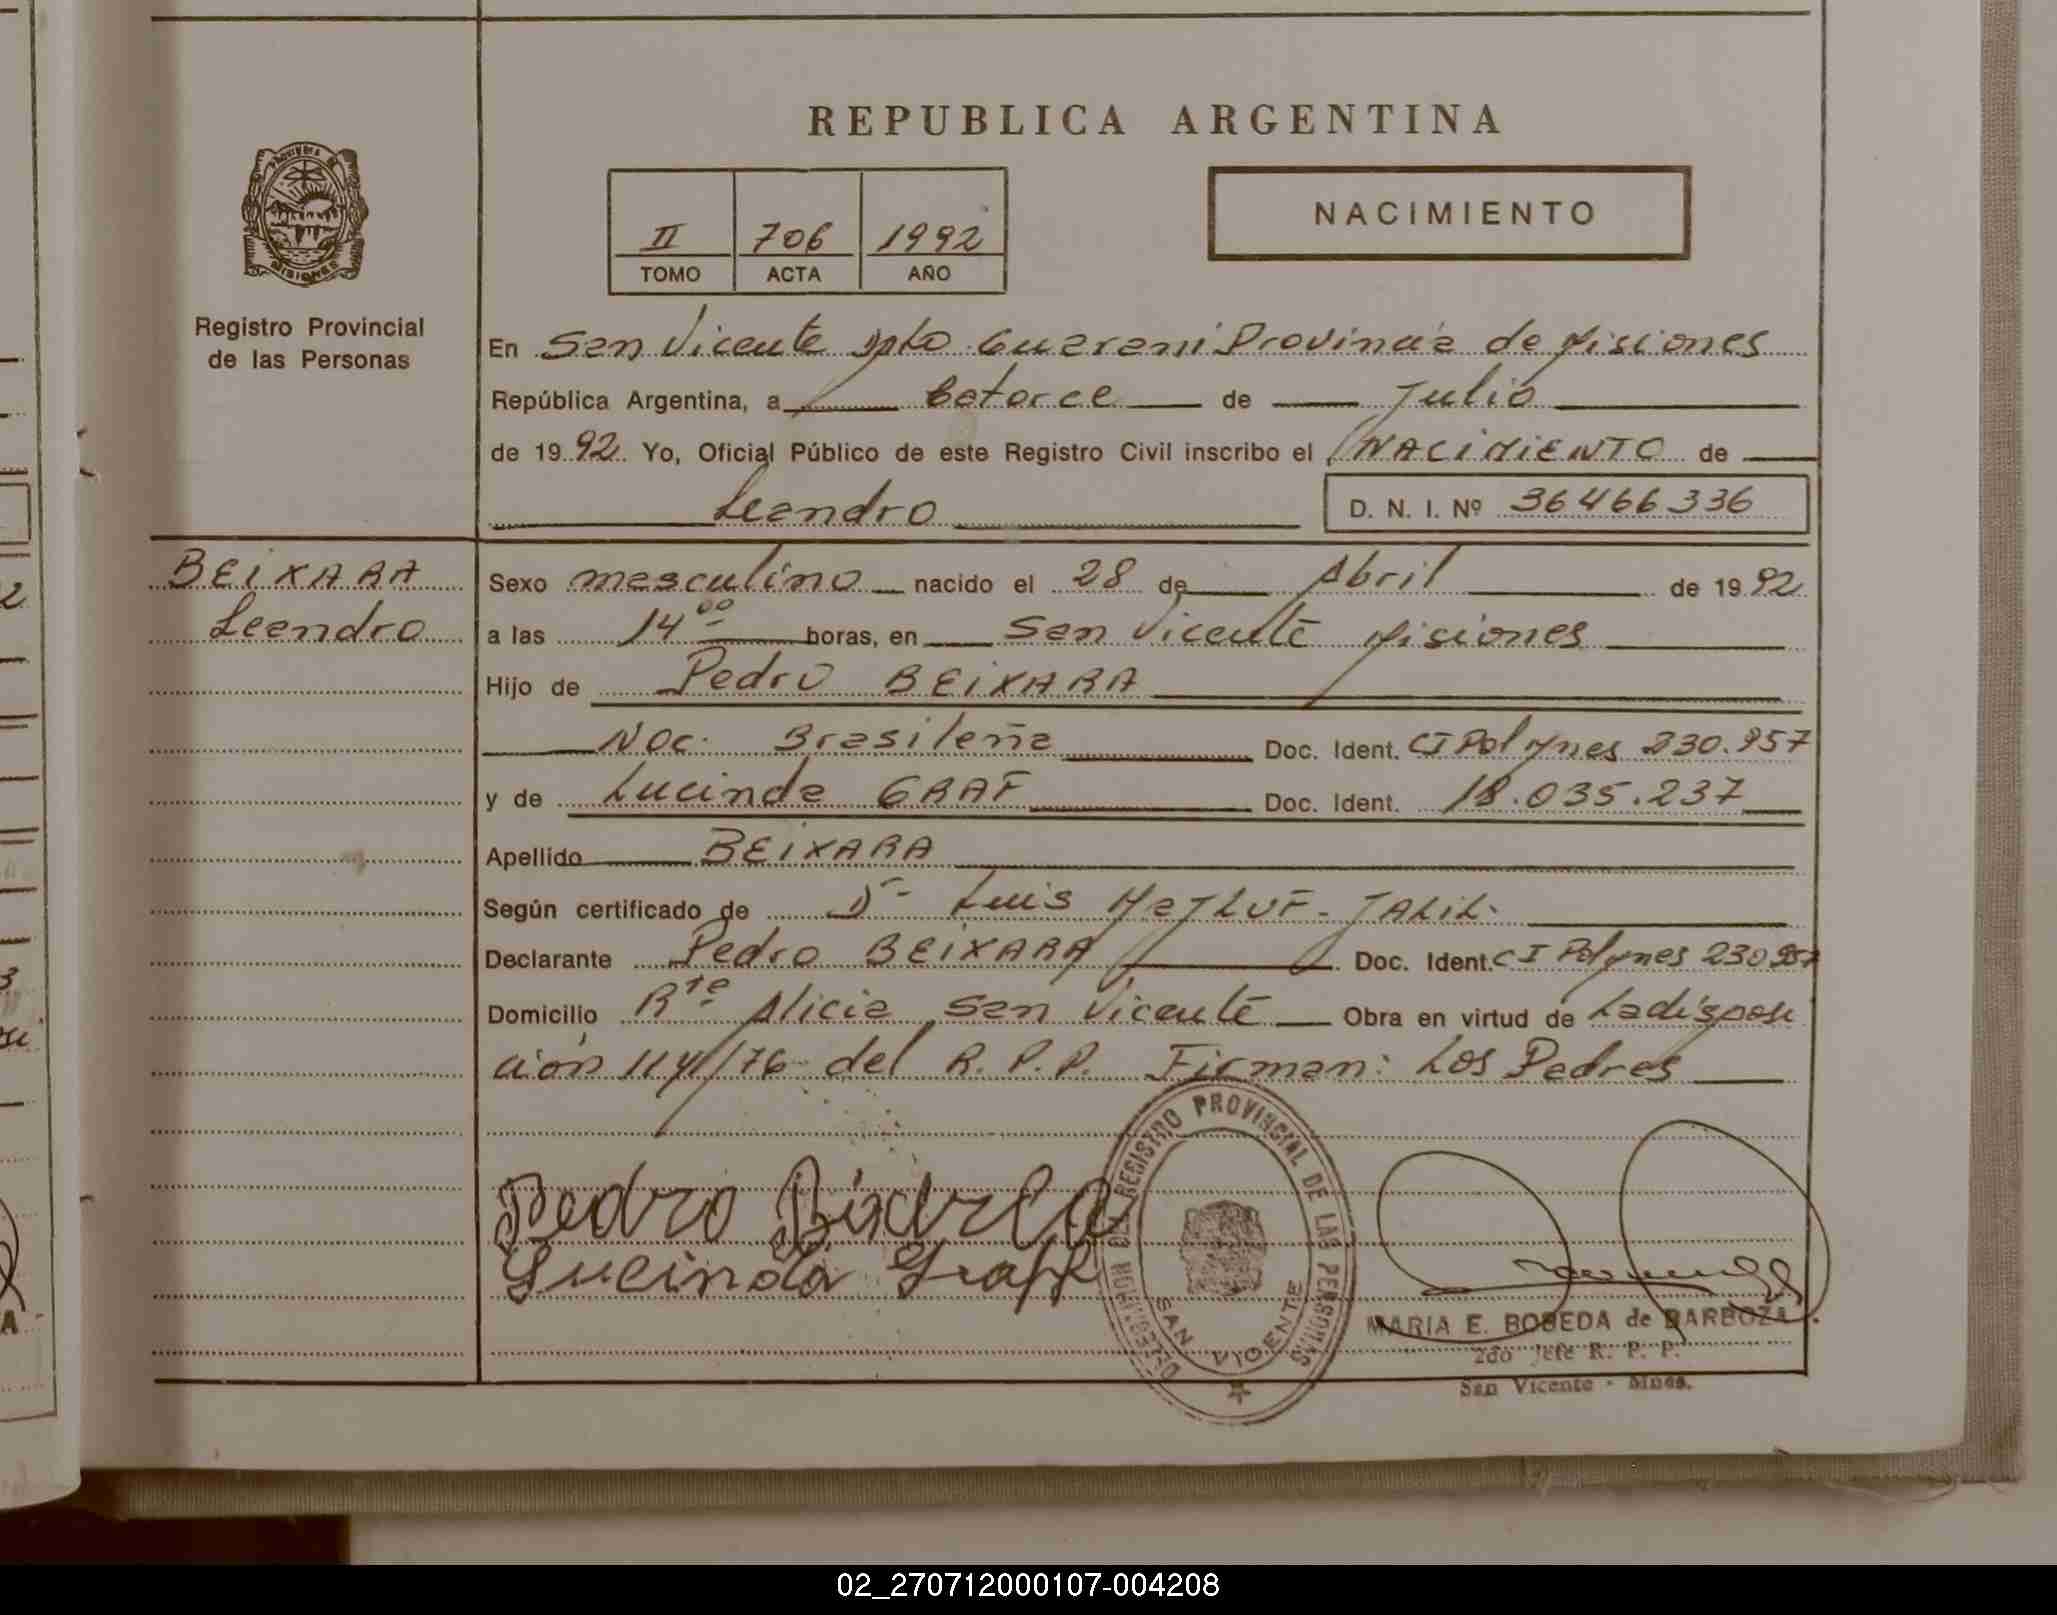 REPUBLICA ARGENTINA
II 706 1992
TOMO ACTA AÑO
NACIMIENTO
PROVINCIA DE
MISIONES
Registro Provincial
de las Personas
En San Vicente Dpto. Guarani Provincia de Misiones
República Argentina, a catorce de Julio
de 1992 Yo, Oficial Público de este Registro Civil inscribo el NACIMIENTO de
Leandro D. N. I. Nº 36466336
BEIXARA
Leandro
Sexo masculino nacido el 28 de Abril de 1992
a las 14 00 horas, en San Vicente Misiones
Hijo de Pedro BEIXARA
Nac. Brasileña Doc. Ident. CI Pol Mnes 230.957
y de Lucinda GRAF Doc. Ident. 18.035.237
Apellido BEIXARA
Según certificado de Dr. Luis MAJLUF - JALIL.
Declarante Pedro BEIXARA Doc. Ident. CI Pol Mnes 230957
Domicilio Rte Alicia San Vicente Obra en virtud de La disposi
ción 114/76 del R.P.P. Firman: Los Padres
Pedro
Lucinda Graff
DELEGACION DEL REGISTRO PROVINCIAL DE LAS PERSONAS
SAN VICENTE
MARIA E. BOBEDA de BARBOZA
2do Jefe R. P. P.
San Vicente - Mnes.
02_270712000107-004208